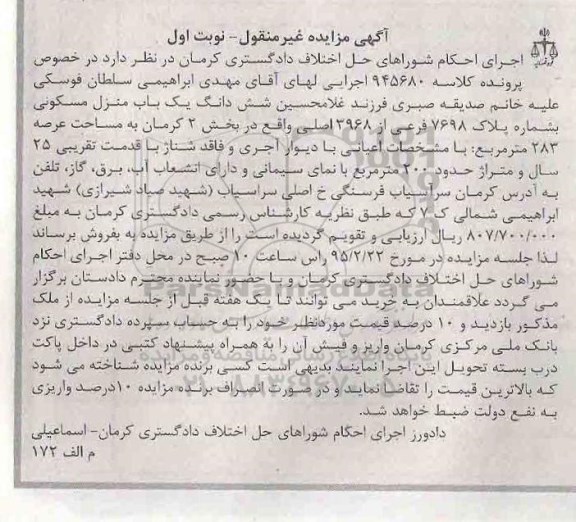 آگهی مزایده غیرمنقول- نوبت اول
اجرای احکام شوراهای حل اختلاف دادگستری کرمان در نظر دارد در خصوص
پرونده کلاسه ۹۴۵۶۸۰ اجرایی لهای آقای مهدی ابراهیمی سلطان فوسکی
علیه خانم صدیقه صبری فرزند غلامحسین شش دانگ یک باب منزل مسکونی
بشماره پلاک ۷۶۹۸ فرعی از ۳۹۶۸ اصلی واقع در بخش ۲ کرمان به مساحت عرصه
۲۸۳ مترمربع: با مشخصات اعیانی با دیوار آجری و فاقد شناژ با قدمت تقریبی ۲۵
سال و متراژ حدود ۲۰۰ مترمربع با نمای سیمانی و دارای انشعاب آب، برق، گاز، تلفن
به آدرس کرمان سرآسیاب فرسنگی خ اصلی سرآسیاب (شهید صیاد شیرازی) شهید
ابراهیمی شمالی ک ۷ که طبق نظریه کارشناس رسمی دادگستری کرمان به مبلغ
۸۰۷/۷۰۰/۰۰۰ ریال ارزیابی و تقویم گردیده است را از طریق مزایده به بفروش برساند
لذا جلسه مزایده در مورخ ۹۵/۲/۲۲ راس ساعت ۱۰ صبح در محل دفتر اجرای احکام
شوراهای حل اختلاف دادگستری کرمان و با حضور نماینده محترم دادستان برگزار
می گردد علاقمندان به خرید می توانند تا یک هفته قبل از جلسه مزایده از ملک
مذکور بازدید و ۱۰ درصد قیمت موردنظر خود را به حساب سپرده دادگستری نزد
بانک ملی مرکزی کرمان واریز و فیش آن را به همراه پیشنهاد کتبی در داخل پاکت
درب بسته تحویل این اجرا نمایند بدیهی است کسی برنده مزایده شناخته می شود
که بالاترین قیمت را تقاضا نماید و در صورت انصراف برنده مزایده ۱۰درصد واریزی
به نفع دولت ضبط خواهد شد.
دادورز اجرای احکام شوراهای حل اختلاف دادگستری کرمان- اسماعیلی
م الف ۱۷۲